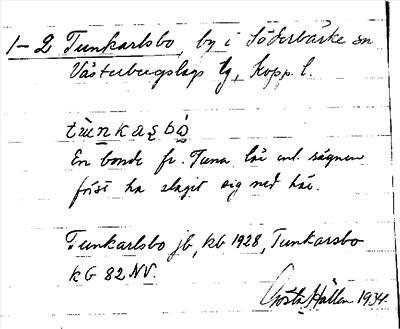 1-2 Tunkarlsbo, by i Söderbärke sn
Västerbergslags tg, Kopp. l.
En bonde fr. Tuna lär enl. sägnen
först ha slagit sig ned här.
Tunkarlsbo jb, kb 1928, Tunkarsbo
KG 82 NV.
Gösta Hallen 1934.